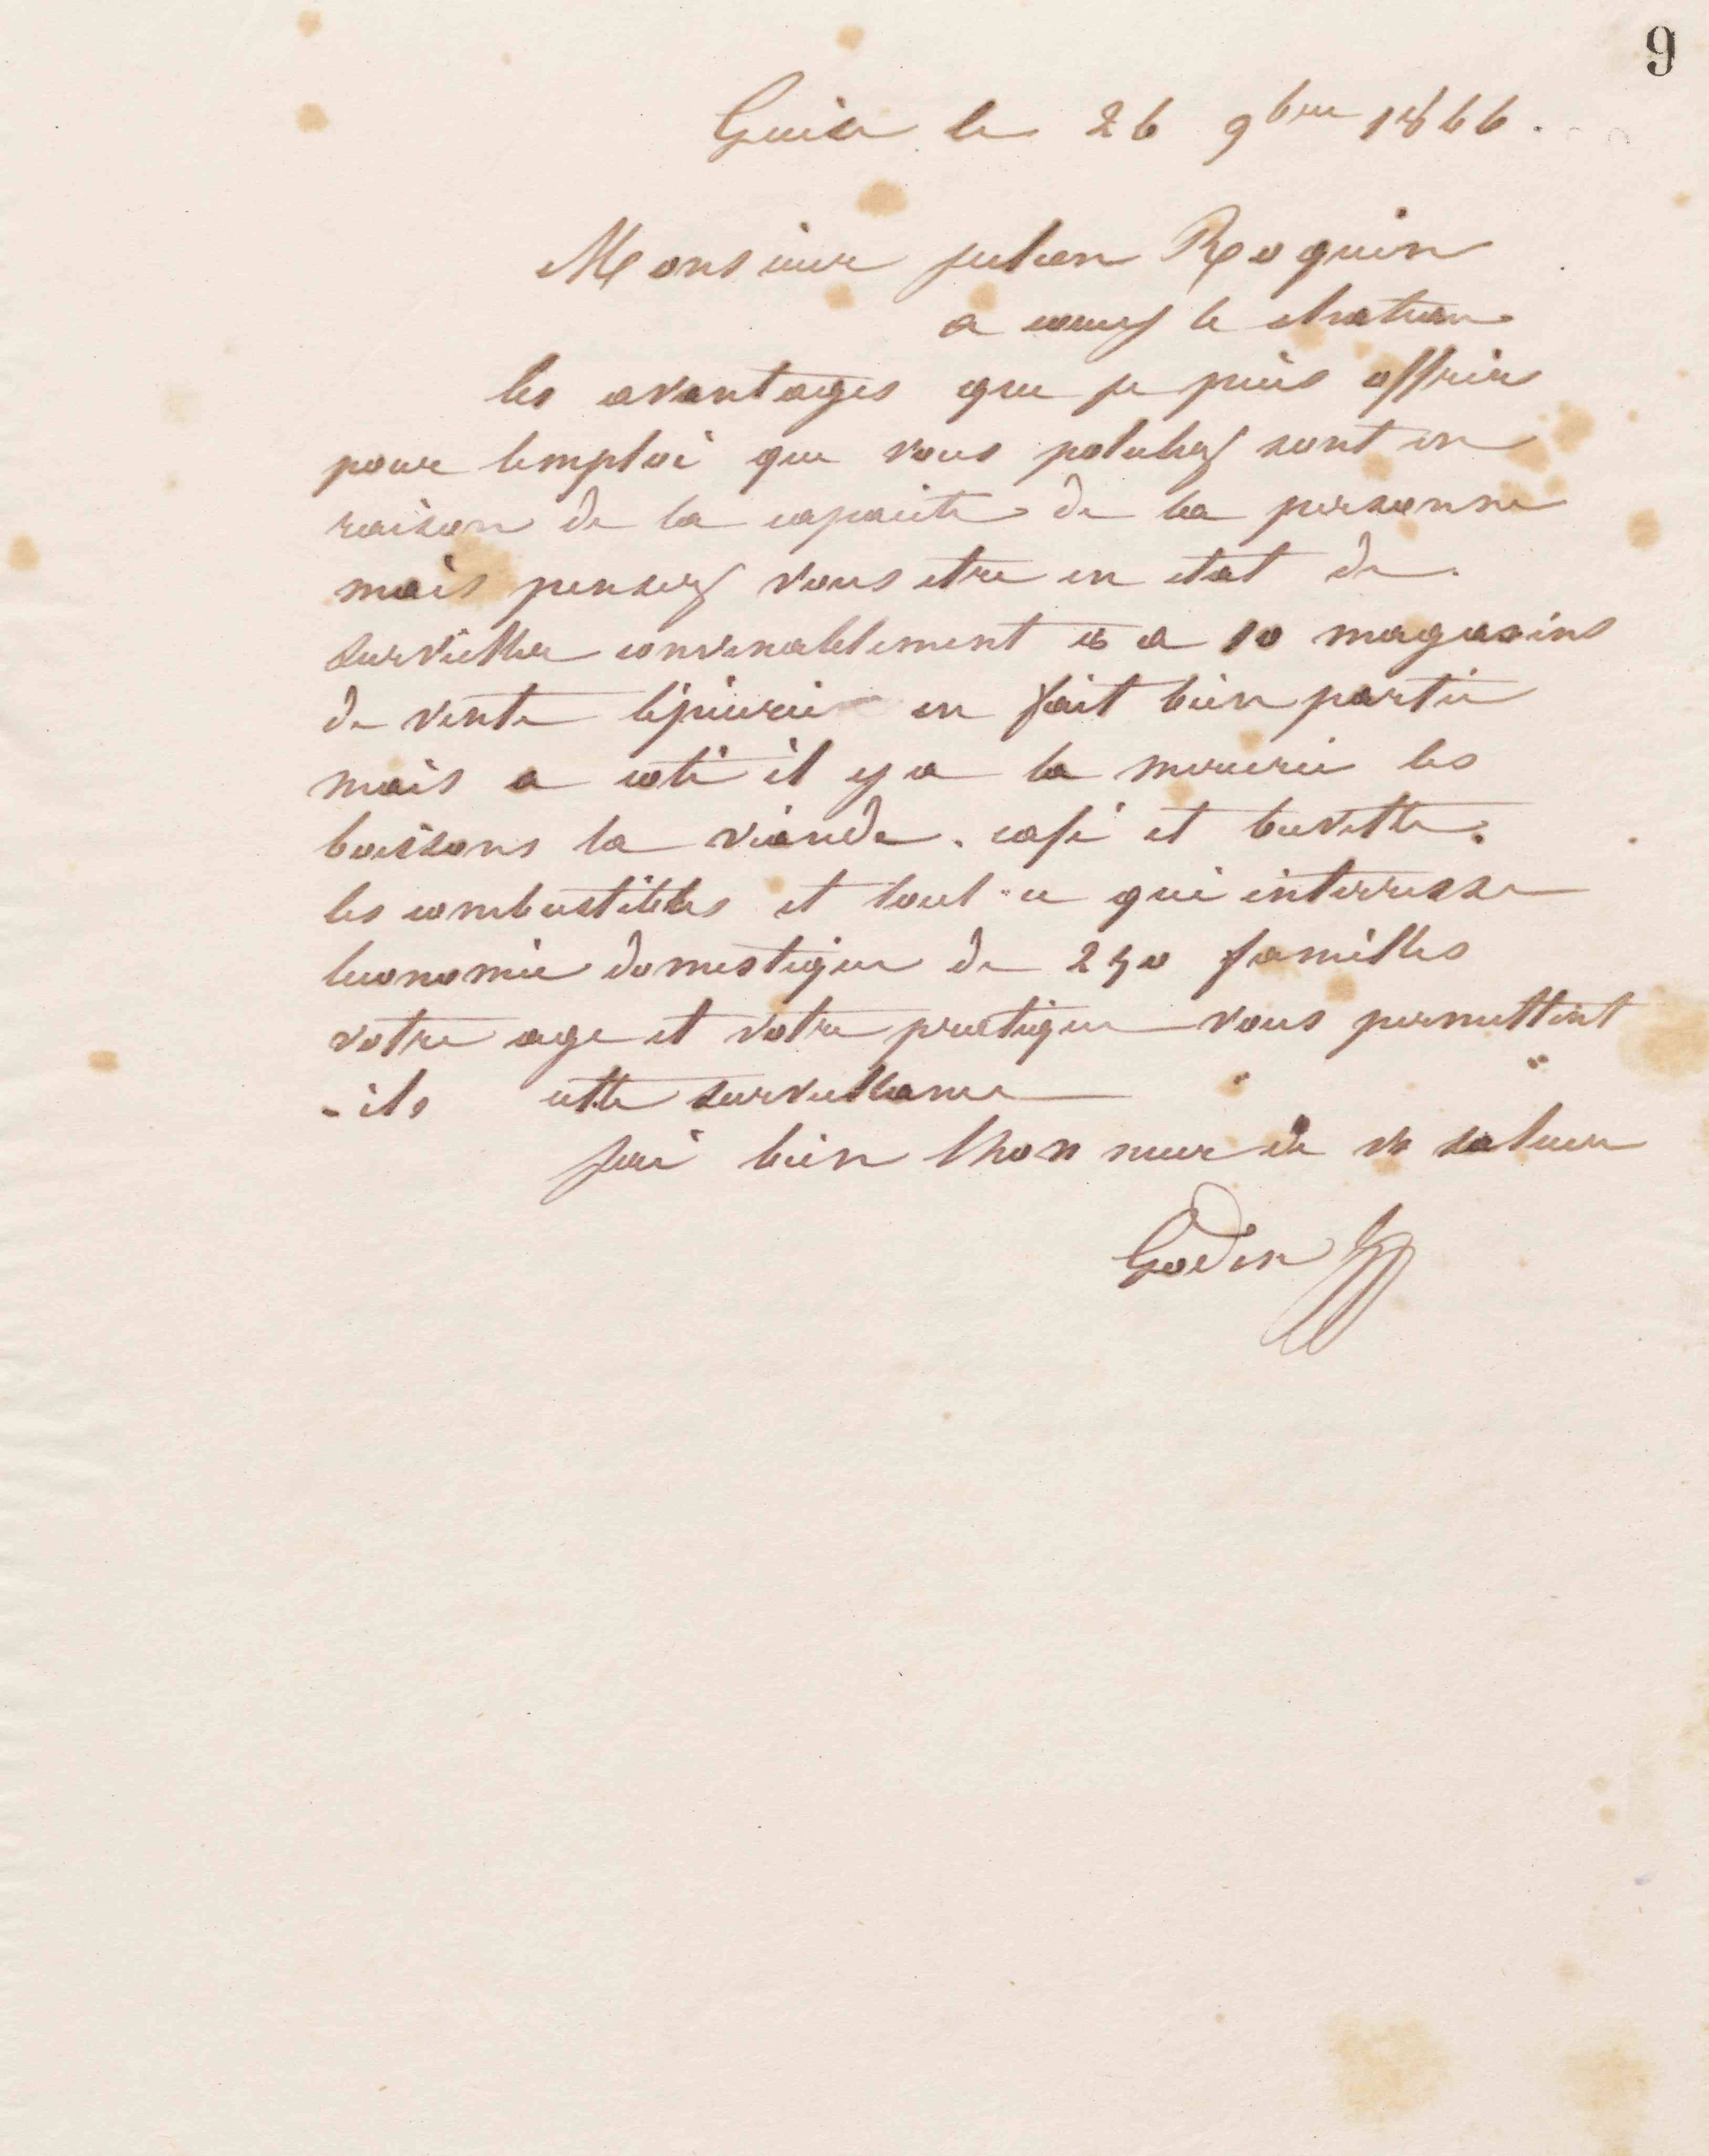 9
Guise le 26 9bre 1866.
Monsieur Julien Roguin
a coucy le chateau
les avantages que je puis offrir
pour lemploi que vous solicitez sont en
raison de la capacité de la personne
mais pensez vous etre en etat de
surveiller convenablement 8 a 10 magasins
de vente lépicerie en fait bien partie
mais a coté il y a la mercerie les
boissons la viande. café et buvette.
les combustibles et tout ce qui interresse
leconomie domestique de 250 familles
votre age et votre pratique vous permettent
-ils cette surveillance
jai bien lhonneur de vs saluer
Godin